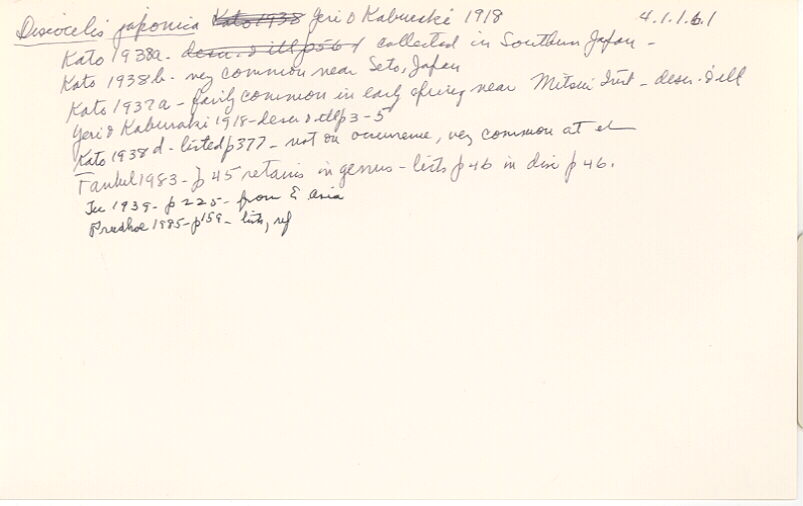 Discocelis japonica Kato 1938 Yeri & Kaburaki 1918 4.1.1.6.1
Kato 1938a. descr. & ill p 564 collected in Southern Japan -
Kato 1938b. very common near Seto, Japan
Kato 1937a - fairly common in early spring near Mitsui Inst - descr. & ill
Yeri & Kaburaki 1918 - descr & ill p 3-5
Kato 1938d - listed p377 - not on occurrence, very common at
Faubel 1983 - p 45 retains in genus - lists p 46 in disc p 46.
Tu 1939 - p 225 - from E Asia
Prudhoe 1985 - p 159 - lists, ref